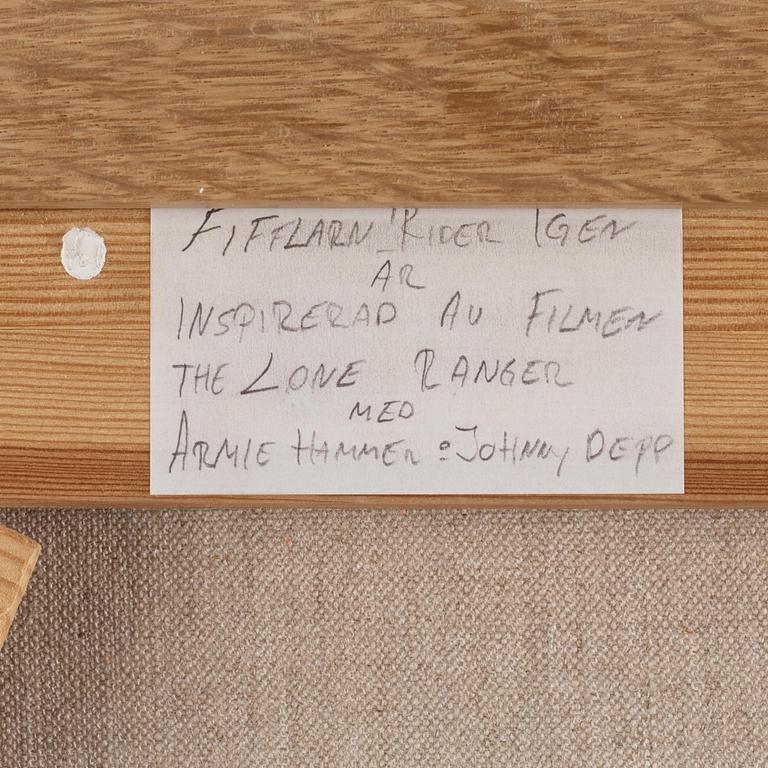 FIFFLARN RIDER IGEN
AR
INSPIRERAD AV FILMEN
THE LONE RANGER
MED
ARMIE HAMMER o JOHNNY DEPP